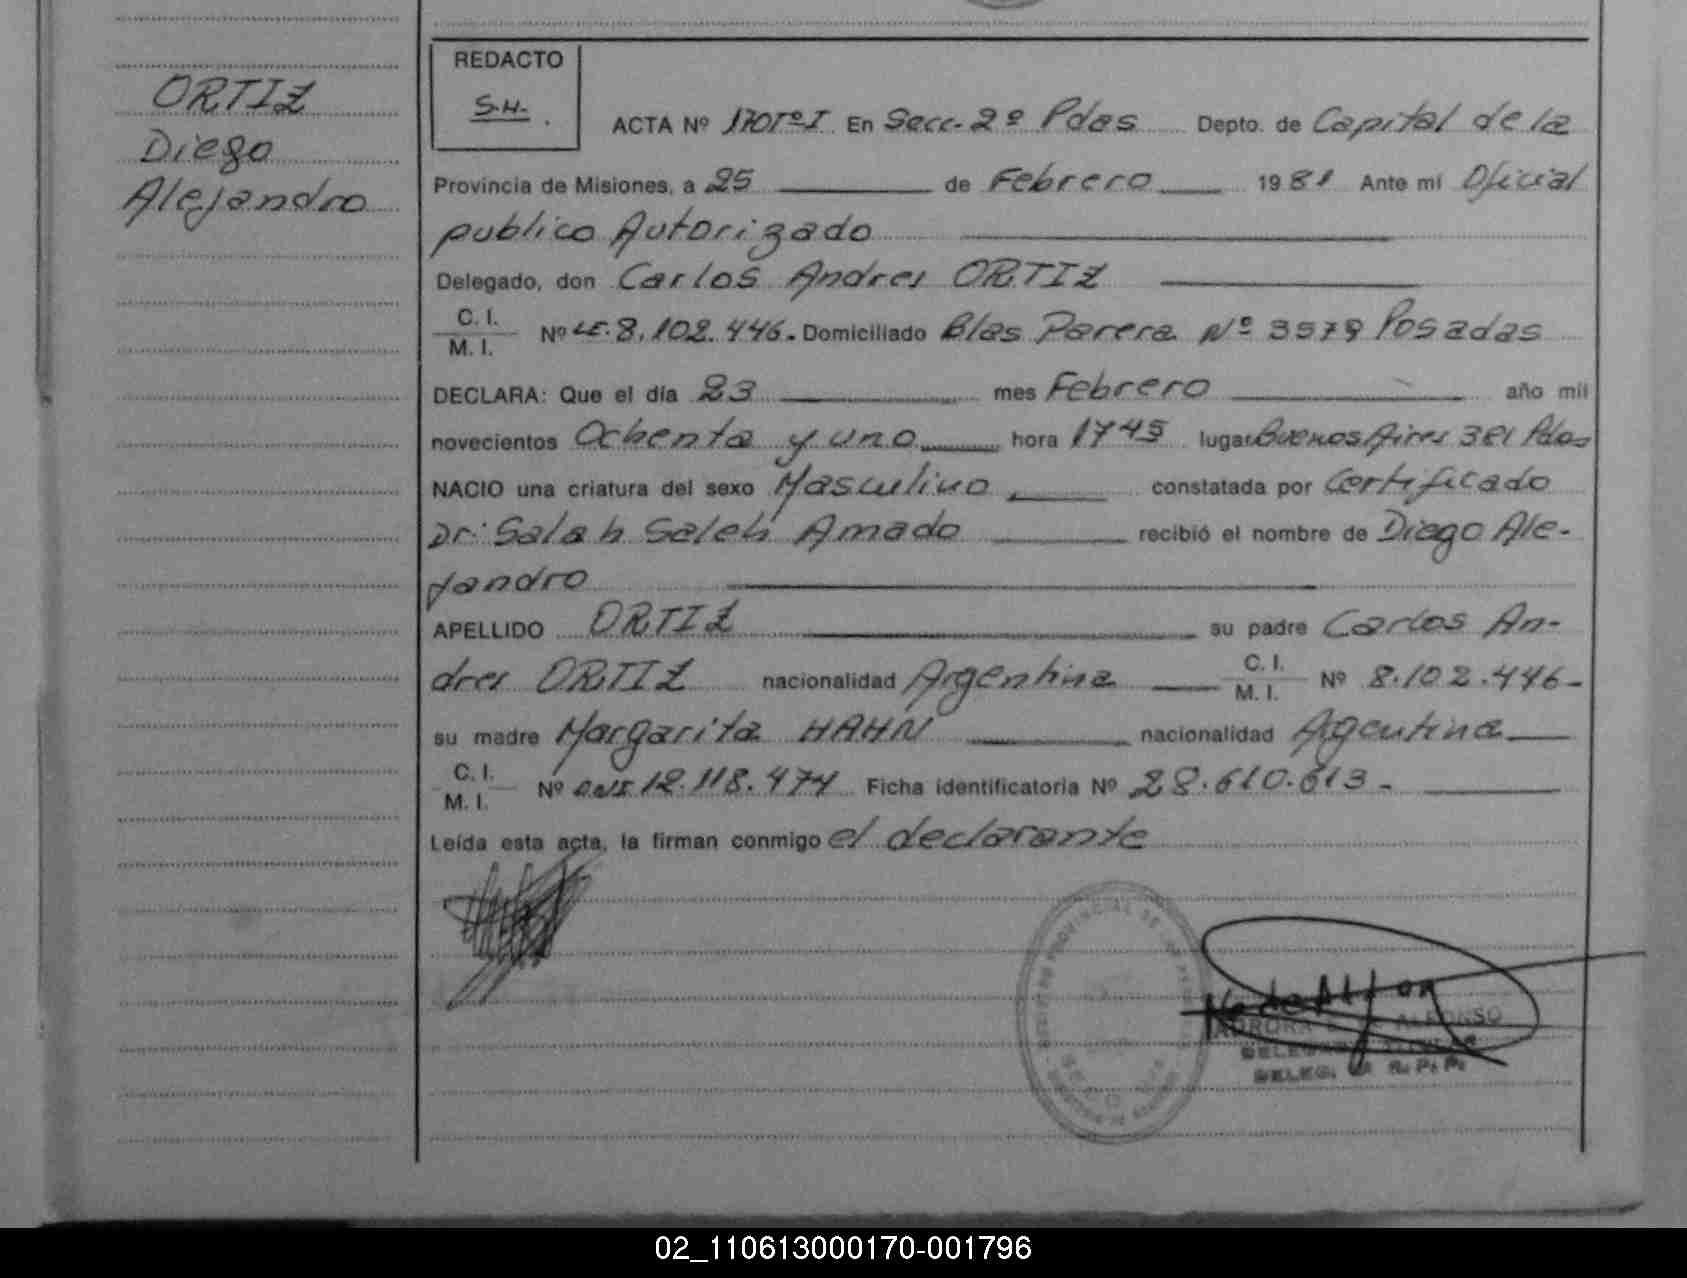 ORTIZ
Diego
Alejandro
REDACTO
S.H.
ACTA Nº 170TºI En Secc. 2º Pdas Depto. de Capital de la
Provincia de Misiones, a 25 de Febrero 1981 Ante mí Oficial
publico Autorizado
Delegado, don Carlos Andres ORTIZ
C. I.
M. I. Nº LE. 8.102.446. Domiciliado Blas Parera Nº 3579 Posadas
DECLARA: Que el día 23 mes Febrero año mil
novecientos Ochenta y uno hora 1745 lugar Buenos Aires 381 Pdas
NACIO una criatura del sexo Masculino constatada por Certificado
Dr: Salah Saleh Amado recibió el nombre de Diego Ale-
jandro
APELLIDO ORTIZ su padre Carlos An-
dres ORTIZ nacionalidad Argentina C. I. M. I. Nº 8.102.446-
su madre Margarita HAHN nacionalidad Agentina
C. I.
M. I. Nº DNI 12.118.474 Ficha identificatoria Nº 28.610.613-
Leída esta acta, la firman conmigo el declarante
ALFONSO
02_110613000170-001796